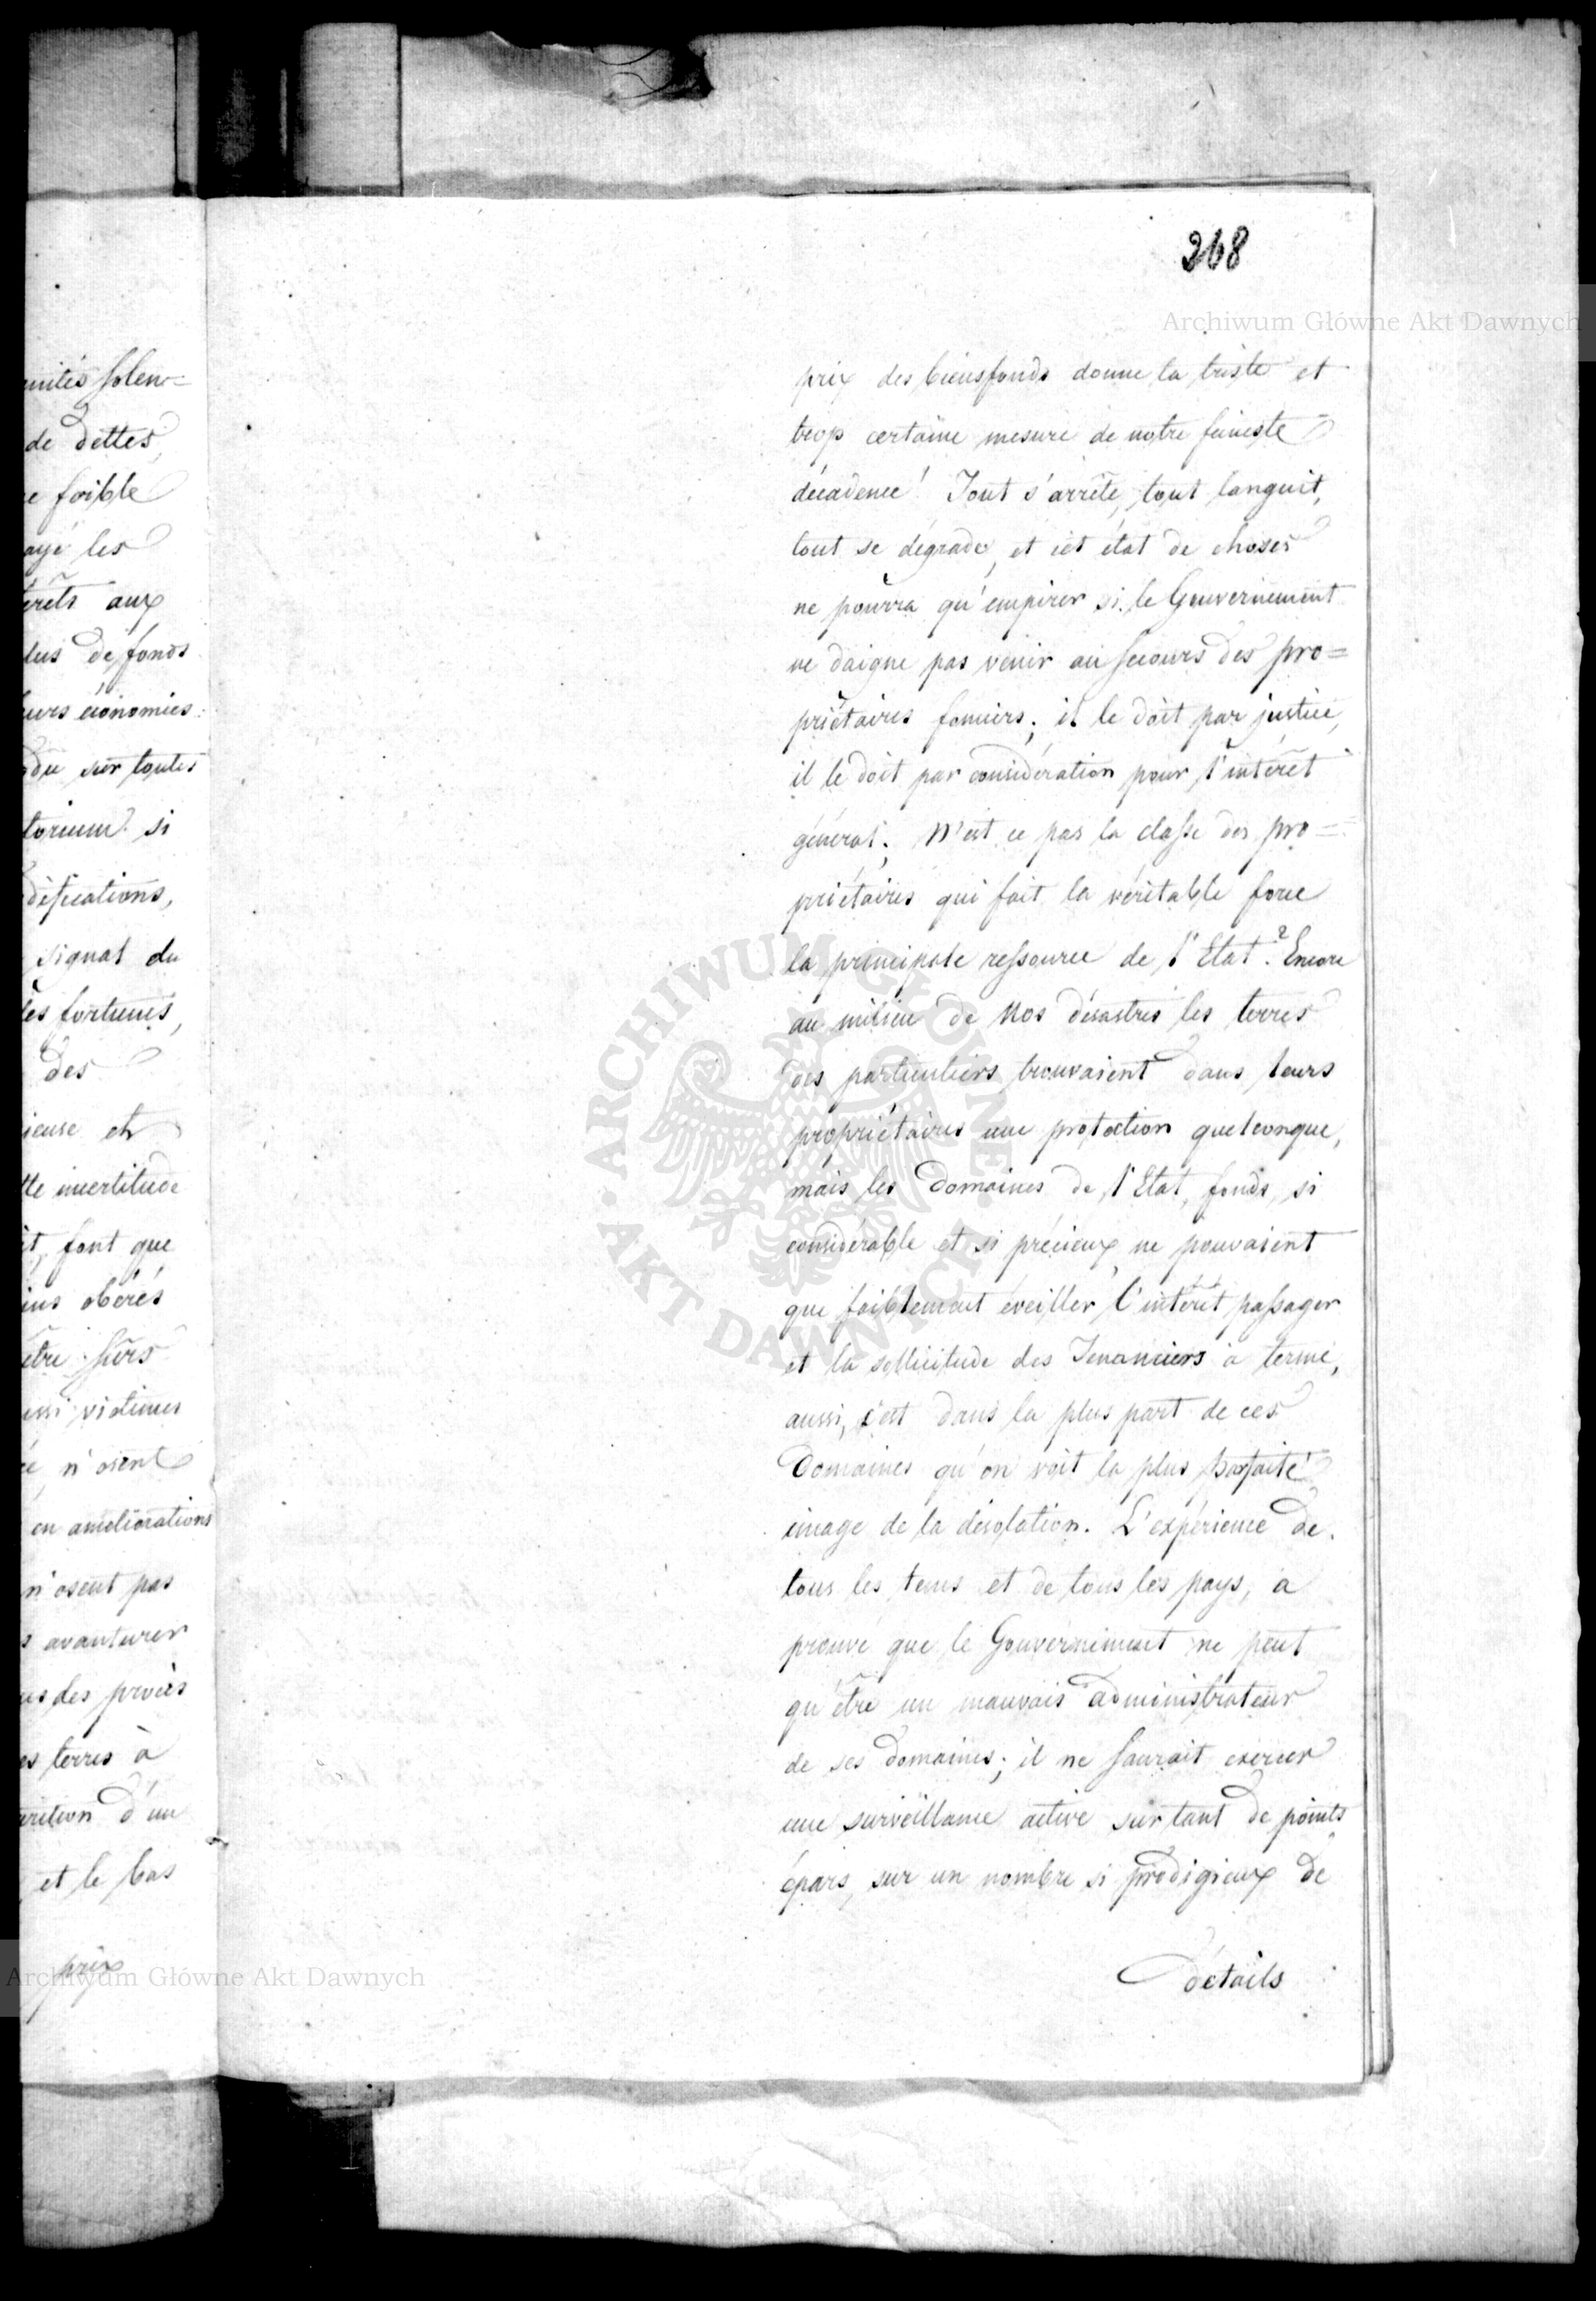 268
Archiwum Główne Akt Dawnych
unités solem=
de dettes,
e foible
ayé les
erêts aux
lus de fonds
eurs économies
du sur toutes
torium si
difications,
signal du
es fortunes,
des
ieuse et
tte incertitude
it, font que
ins obérés
être sûrs
ussi victimes
é, n'osent
en améliorations
n'osent pas
s avanturer
us des procès
es terres à
rition d'un
et le bas
prix
prix des biensfonds donne la triste et
trop certaine mesure de notre funeste
décadence! Tout s'arrête, tout languit,
tout se dégrade, et cet état de choses
ne pourra qu'empirer si le Gouvernement
ne daigne pas venir au secours des pro=
priétaires fonciers; il le doit par justice,
il le doit par considération pour l'intérêt
général. N'est ce pas la classe des pro=
priétaires qui fait la véritable force
la principale ressource de l'Etat? Encore
au milieu de Nos désastres les terres
des particuliers trouvaient dans leurs
propriétaires une protection quelconque,
mais les Domaines de l'Etat, fonds si
considérable et si précieux, ne pouvaient
que foiblement éveiller l'intérêt passager
et la sollicitude des Tenanciers à terme,
aussi, c'est dans la plus part de ces
Domaines qu'on voit la plus parfaite
image de la désolation. L'expérience de
tous les tems et de tous les pays, a
prouvé que le Gouvernement ne peut
qu'être un mauvais administrateur
de ses domaines; il ne saurait exercer
une surveillance active sur tant de points
épars, sur un nombre si prodigieux de
détails
ARCHIWUM GŁÓWNE
AKT DAWNYCH
Archiwum Główne Akt Dawnych